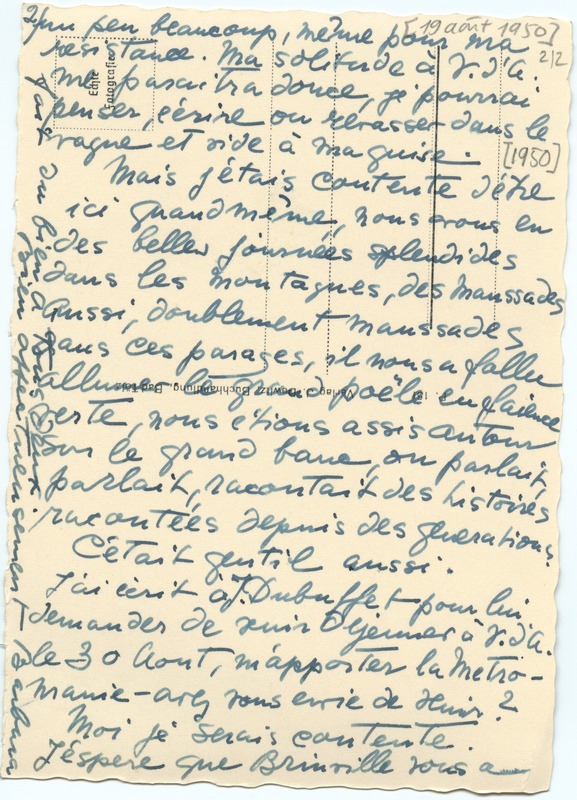 2/un peu beaucoup, même pour ma
[19 août 1950]
2/2
résistance. Ma solitude à V. d'A.
me paraitra douce, je pourrai
penser, écrire ou rêvasser dans le
vague et vide à ma guise.
[1950]
Mais j'étais contente d'être
ici quand même, nous avons eu
des belles journées splendides
dans les montagnes, des maussades
aussi, doublement maussades
dans ces parages, il nous a fallu
allumer le poêle en faïence
verte, nous étions assis autour
sur le grand banc, on parlait,
parlait, racontait des histoires
racontées depuis des generations.
C'était gentil aussi.
J'ai écrit à J. Dubuffet pour lui
demander de venir déjeuner à V. d'A.
le 30 Aout, m'apporter la Métro-
manie - avez vous envie de venir?
Moi je serais contente.
J'éspère que Brinville vous a
fait du bien à tous deux
bien
Echte
Fotografie
Verlag J. Dewitz, Buchhandlung, Bad Tölz